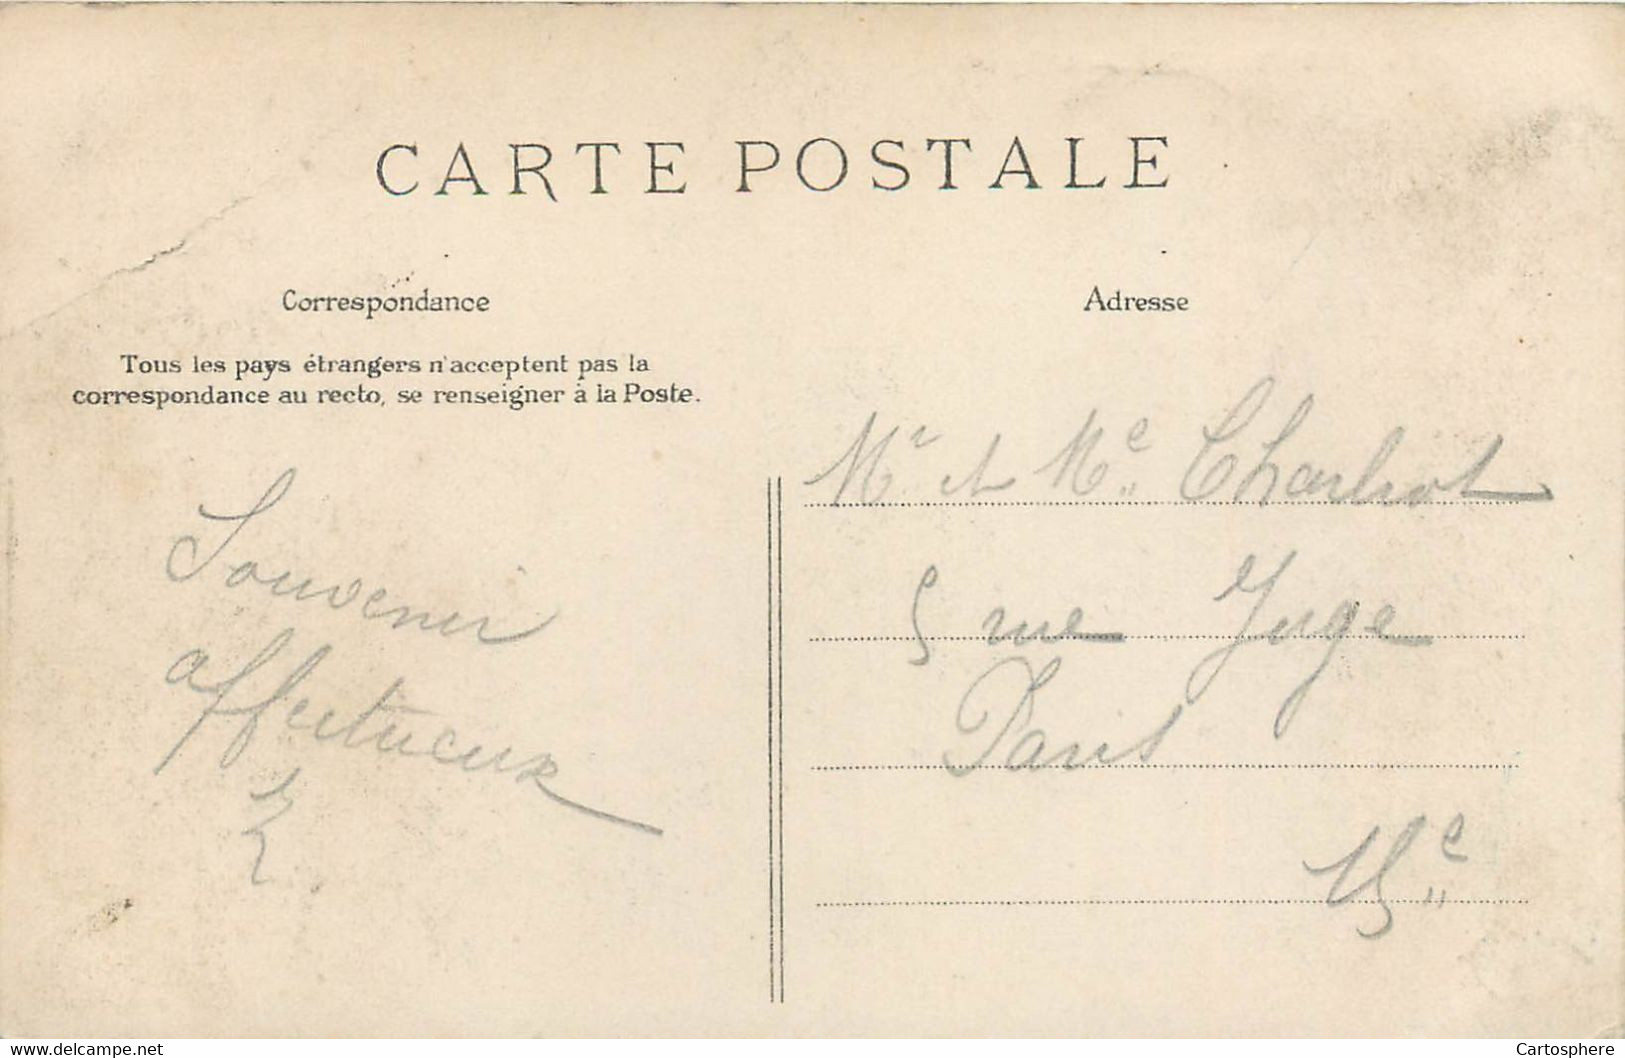 CARTE POSTALE
Correspondance
Tous les pays étrangers n'acceptent pas la
correspondance au recto, se renseigner à la Poste.
Souvenir
affectueux
Adresse
Mr et Me Charbot
5 rue Juge
Paris
15e
Cartosphere
www.delcampe.net